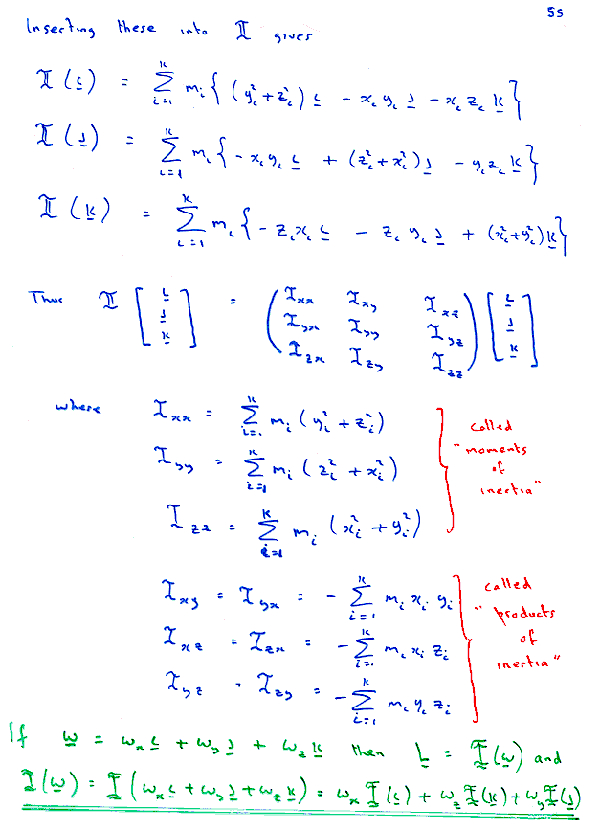 55
Inserting these into I gives
I(i) = ∑_{i=1}^{k} m_i { (y_i² + z_i²) i - x_i y_i j - x_i z_i k }
I(j) = ∑_{i=1}^{k} m_i { - x_i y_i i + (z_i² + x_i²) j - y_i z_i k }
I(k) = ∑_{i=1}^{k} m_i { - z_i x_i i - z_i y_i j + (x_i² + y_i²) k }
Thus I [ i j k ] = ( I_xx I_xy I_xz
I_yx I_yy I_yz
I_zx I_zy I_zz ) [ i j k ]
where I_xx = ∑_{i=1}^{k} m_i (y_i² + z_i²)
I_yy = ∑_{i=1}^{k} m_i (z_i² + x_i²)
I_zz = ∑_{i=1}^{k} m_i (x_i² + y_i²)
called
"moments
of
inertia"
I_xy = I_yx = - ∑_{i=1}^{k} m_i x_i y_i
I_xz = I_zx = - ∑_{i=1}^{k} m_i x_i z_i
I_yz = I_zy = - ∑_{i=1}^{k} m_i y_i z_i
called
"products
of
inertia"
If ω = ω_x i + ω_y j + ω_z k then L = I(ω) and
I(ω) = I(ω_x i + ω_y j + ω_z k) = ω_x I(i) + ω_z I(k) + ω_y I(j)